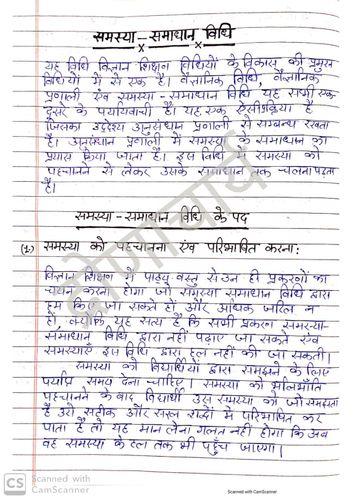 समस्या - समाधान विधि
यह विधि विज्ञान शिक्षण विधियों के विकास की प्रमुख
विधियों में से एक है। वैज्ञानिक विधि, वैज्ञानिक
प्रणाली एंव समस्या - समाधान विधि यह सभी एक-
दूसरे के पर्यायवाची हैं। यह एक ऐसी प्रक्रिया है
जिसका उद्देश्य अनुसंधान प्रणाली से सम्बन्ध रखता
है। अनुसंधान प्रणाली में समस्या के समाधान का
प्रयास किया जाता है। इस विधि में समस्या को
पहचानने से लेकर उसके समाधान तक चलना पड़ता
है।
समस्या - समाधान विधि के पद
(1.) समस्या को पहचानना एंव परिभाषित करना:
विज्ञान शिक्षण में पाठ्य वस्तु से उन ही प्रकरणों का
चयन करना होगा जो समस्या समाधान विधि द्वारा
हल किए जा सकते हों और अधिक जटिल न
हों, क्योंकि यह सत्य है कि सभी प्रकरण समस्या-
समाधान विधि द्वारा नहीं पढ़ाए जा सकते एंव
समस्याएँ इस विधि द्वारा हल नहीं की जा सकती।
समस्या को विद्यार्थियों द्वारा समझने के लिए
पर्याप्त समय देना चाहिए। समस्या को भलिभाँति
पहचानने के बाद विद्यार्थी उस समस्या को जो समझता
है उसे सटीक और सरल शब्दों में परिभाषित कर
पाता है तो यह मान लेना गलत नहीं होगा कि अब
वह समस्या के हल तक भी पहुँच जाएगा।
द्रोणाचार्य
CS Scanned with
CamScanner
Scanned with CamScanner